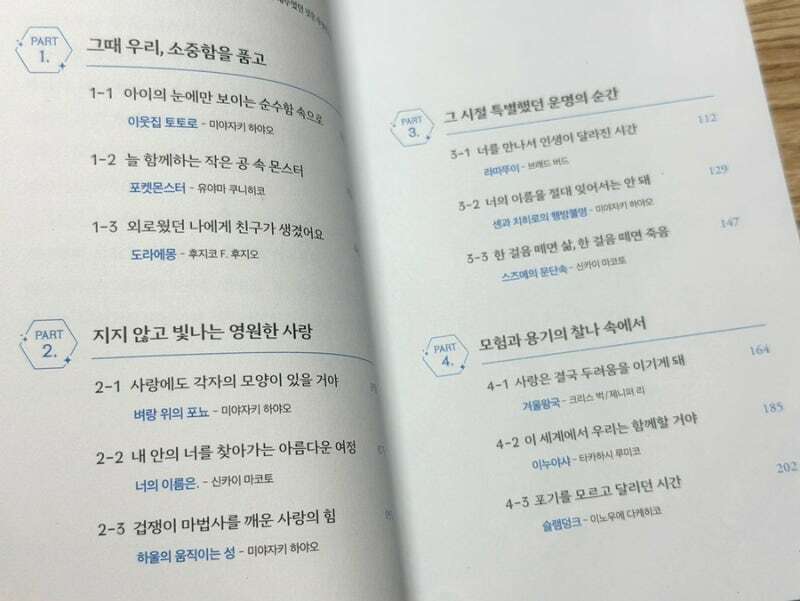 PART
1.
그때 우리, 소중함을 품고
1-1 아이의 눈에만 보이는 순수함 속으로
이웃집 토토로 - 미야자키 하야오
1-2 늘 함께하는 작은 공 속 몬스터
포켓몬스터 - 유야마 쿠니히코
1-3 외로웠던 나에게 친구가 생겼어요
도라에몽 - 후지코 F. 후지오
PART
2.
지지 않고 빛나는 영원한 사랑
2-1 사랑에도 각자의 모양이 있을 거야
벼랑 위의 포뇨 - 미야자키 하야오
2-2 내 안의 너를 찾아가는 아름다운 여정
너의 이름은. - 신카이 마코토
2-3 겁쟁이 마법사를 깨운 사랑의 힘
하울의 움직이는 성 - 미야자키 하야오
PART
3.
그 시절 특별했던 운명의 순간
3-1 너를 만나서 인생이 달라진 시간 112
라따뚜이 - 브래드 버드
3-2 너의 이름을 절대 잊어서는 안 돼 129
센과 치히로의 행방불명 - 미야자키 하야오
3-3 한 걸음 떼면 삶, 한 걸음 떼면 죽음 147
스즈메의 문단속 - 신카이 마코토
PART
4.
모험과 용기의 찰나 속에서
4-1 사랑은 결국 두려움을 이기게 돼 164
겨울왕국 - 크리스 벅/제니퍼 리
4-2 이 세계에서 우리는 함께할 거야 185
이누야샤 - 타카하시 루미코
4-3 포기를 모르고 달리던 시간 202
슬램덩크 - 이노우에 다케히코